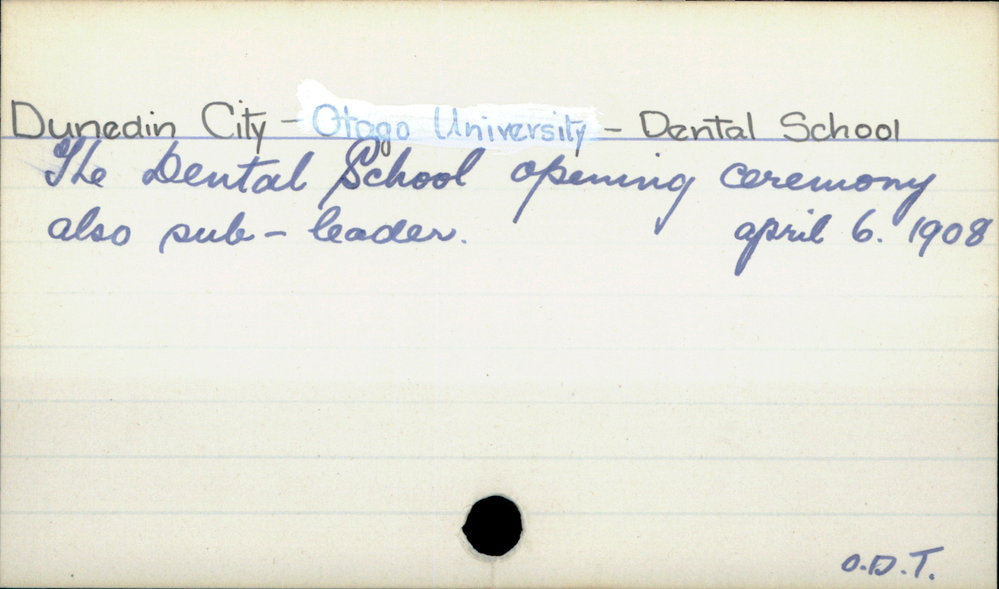 Dunedin City - Otago University - Dental School
The Dental School opening ceremony
also sub-leader. april 6. 1908
O.D.T.